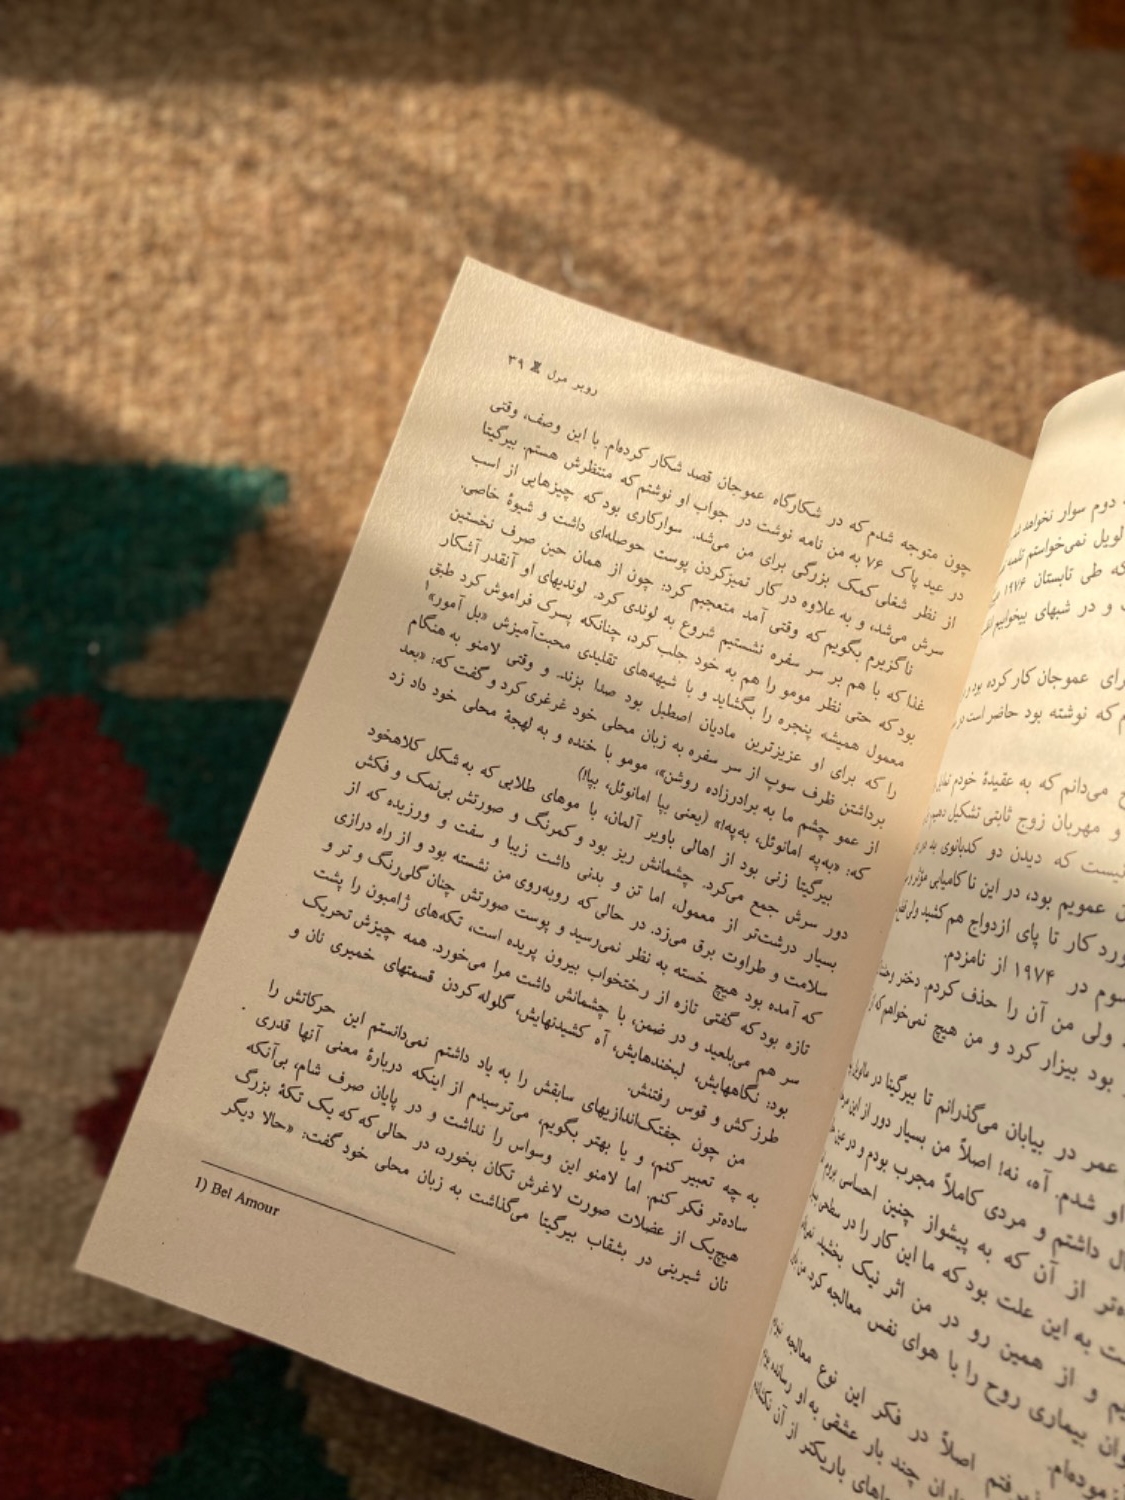 روبر مرل ۳۹
چون متوجه شدم که در شکارگاه عموجان قصد شکار کرده‌ام. با این وصف، وقتی
در عید پاک ۷۶ به من نامه نوشت در جواب او نوشتم که منتظرش هستم. بیرگیتا
از نظر شغلی کمک بزرگی برای من می‌شد. سوارکاری بود که چیزهایی از اسب
سرش می‌شد، و به علاوه در کار تمیزکردن پوست حوصله‌ای داشت و شیوهٔ خاصی.
ناگزیرم بگویم که وقتی آمد متعجبم کرد: چون از همان حین صرف نخستین
غذا که با هم بر سر سفره نشستیم شروع به لوندی کرد. لوندیهای او آنقدر آشکار
بود که حتی نظر مومو را هم به خود جلب کرد، چنانکه پسرک فراموش کرد طبق
معمول همیشه پنجره را بگشاید و با شیهه‌های تقلیدی محبت‌آمیزش «بل آمور»۱
را که برای او عزیزترین مادیان اصطبل بود صدا بزند. و وقتی لامنو به هنگام
برداشتن ظرف سوپ از سر سفره به زبان محلی خود غرغری کرد و گفت که: «بعد
از عمو چشم ما به برادرزاده روشن»، مومو با خنده و به لهجهٔ محلی خود داد زد
که: «به‌په امانوئل، به‌په!» (یعنی بپا امانوئل، بپا!)
بیرگیتا زنی بود از اهالی باویر آلمان، با موهای طلایی که به شکل کلاهخود
دور سرش جمع می‌کرد. چشمانش ریز بود و کمرنگ و صورتش بی‌نمک و فکش
بسیار درشت‌تر از معمول، اما تن و بدنی داشت زیبا و سفت و ورزیده که از
سلامت و طراوت برق می‌زد. در حالی که روبه‌روی من نشسته بود و از راه درازی
که آمده بود هیچ خسته به نظر نمی‌رسید و پوست صورتش چنان گلی‌رنگ و تر و
تازه بود که گفتی تازه از رختخواب بیرون پریده است، تکه‌های ژامبون را پشت
سر هم می‌بلعید و در ضمن، با چشمانش داشت مرا می‌خورد. همه چیزش تحریک
بود: نگاههایش، لبخندهایش، آه کشیدنهایش، گلوله کردن قسمتهای خمیری نان و
طرز کش و قوس رفتنش.
من چون جفتک‌اندازیهای سابقش را به یاد داشتم نمی‌دانستم این حرکاتش را
به چه تعبیر کنم، و یا بهتر بگویم، می‌ترسیدم از اینکه دربارهٔ معنی آنها قدری
ساده‌تر فکر کنم. اما لامنو این وسواس را نداشت و در پایان صرف شام، بی‌آنکه
هیچ‌یک از عضلات صورت لاغرش تکان بخورد، در حالی که که یک تکهٔ بزرگ
نان شیرینی در بشقاب بیرگیتا می‌گذاشت به زبان محلی خود گفت: «حالا دیگر
1) Bel Amour
دوم سوار نخواهد
لویل نمی‌خواستم
که طی تابستان ۱۹۷۶
و در شبهای بیخوابیم
عموجان کار کرده بود
که نوشته بود حاضر است
می‌دانم که به عقیدهٔ خودم
و مهربان زوج ثابتی تشکیل دهیم
نیست که دیدن دو کدبانوی
عمویم بود، در این ناکامیابی
کار تا پای ازدواج هم کشید ولی
سوم در ۱۹۷۴ از نامزدم.
ولی من آن را حذف کردم. دختر
بود بیزار کرد و من هیچ نمی‌خواهم که
عمر در بیابان می‌گذرانم تا بیرگیتا در
او شدم. آه، نه! اصلاً من بسیار دور از این
داشتم و مردی کاملاً مجرب بودم و در
از آن که به پیشواز چنین احساسی بروم
به این علت بود که ما این کار را در سطحی
و از همین رو در من اثر نیک بخشید
بیماری روح را با هوای نفس معالجه کرد
اصلاً در فکر این نوع معالجه
چند بار عشقی به او رسانده
باریکتر از آن